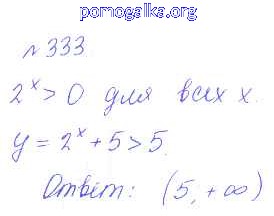 pomogalka.org
№333
2ˣ > 0 для всех x.
y = 2ˣ + 5 > 5.
Ответ: (5, +∞)